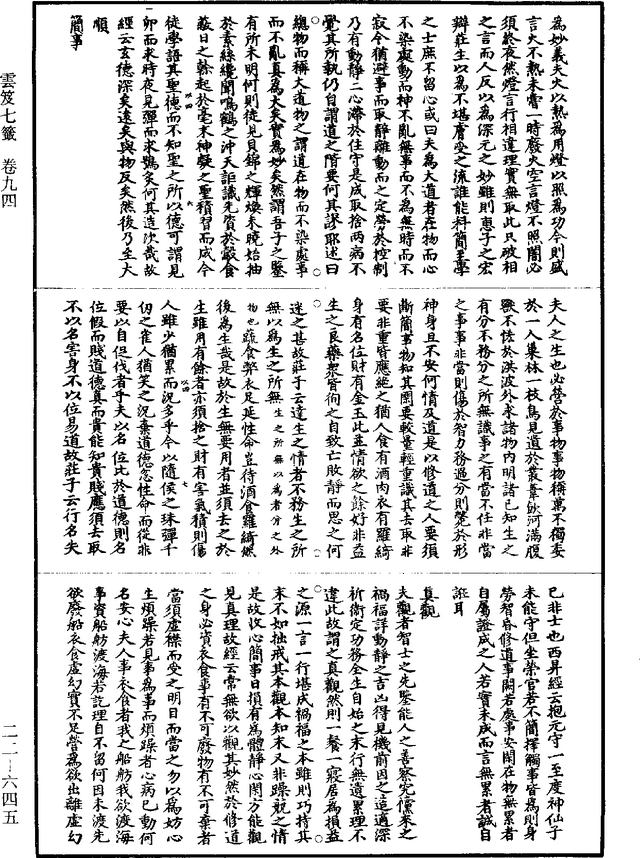 雲笈七籤 卷九四
為妙義夫火以熱為用燈以照為功今則盛
言火不熱未嘗一時廢火空言燈不照闇必
須終夜然燈言行相違理實無取此只破相
之言而人反以為深元之妙雖則惠子之宏
辯莊生以為不堪膚受之流誰能科簡至學
之士庶不留心或曰夫為大道者在物而心
不染處動而神不亂無事而不為無時而不
寂今猶避事而取靜離動而之定勞於控制
乃有動靜二心滯於住守是成取捨兩病不
覺其所執仍自謂道之階要何其謬耶述曰
總物而稱大道物之謂道在物而不染處事
而不亂真為大矣實為妙矣然謂吾子之鑒
有所未明何則徒見貝錦之輝煥未曉始抽
於素絲纔聞鳴鶴之沖天詎識先資於鷇食
蔽日之榦起於毫末神凝之聖積習而成今
以四 六
徒學語其聖德而不知聖之所以德可謂見
卵而求時夜見彈而求鴞炙何其造次哉故
經云玄德深矣遠矣與物反矣然後乃至大
順
簡事
夫人之生也必營於事物事物稱萬不獨委
於一人巢林一枝鳥見遺於叢葦飲河滿腹
獸不恡於洪波外求諸物內明諸已知生之
有分不務分之所無識事之有當不任非當
之事事非當則傷於智力務過分則斃於形
神身且不安何情及道是以修道之人要須
斷簡事物知其閑要較量輕重識其去取非
要非重皆應絕之猶人食有酒肉衣有羅綺
身有名位財有金玉此並情欲之餘好非益
生之良藥眾皆徇之自致亡敗靜而思之何
迷之甚故莊子云達生之情者不務生之所
無以為生之所無生之所無以為者分之外
物也蔬食弊衣足延性命豈待酒食羅綺然
後為生哉是故於生無要用者並須去之於
生雖用有餘者亦須捨之財有害氣積則傷
以四 七
人雖少猶累而況多乎今以隨侯之珠彈千
仞之雀人猶笑之況棄道德忽性命而從非
要以自促伐者乎夫以名位比於道德則名
位假而賤道德真而貴能知貴賤應須去取
不以名害身不以位易道故莊子云行名失
已非士也西昇經云抱元守一至度神仙子
未能守但坐榮官若不簡擇觸事皆為則身
勞智昏修道事闕若處事安閑在物無累者
自屬證成之人若實未成而言無累者誠自
誑耳
真觀
夫觀者智士之先鑒能人之善察究儻來之
禍福詳動靜之吉凶得見機前因之造適深
祈衛定功務全生自始之末行無遺累理不
違此故謂之真觀然則一餐一寢居為損益
之源一言一行堪成禍福之本雖則巧持其
末不如拙戒其本觀本知末又非躁競之情
是故收心簡事日損有為體靜心閑方能觀
見真理故經云常無欲以觀其妙然於修道
之身必資衣食事有不可廢物有不可棄者
當須虛襟而受之明目而當之勿以為妨心
生煩躁若見事為事而煩躁者心病已動何
名安心夫人事衣食者我之船舫我欲渡海
事資船舫渡海若訖理自不留何因未渡先
欲廢船衣食虛幻實不足營為欲出離虛幻
二二—六四五